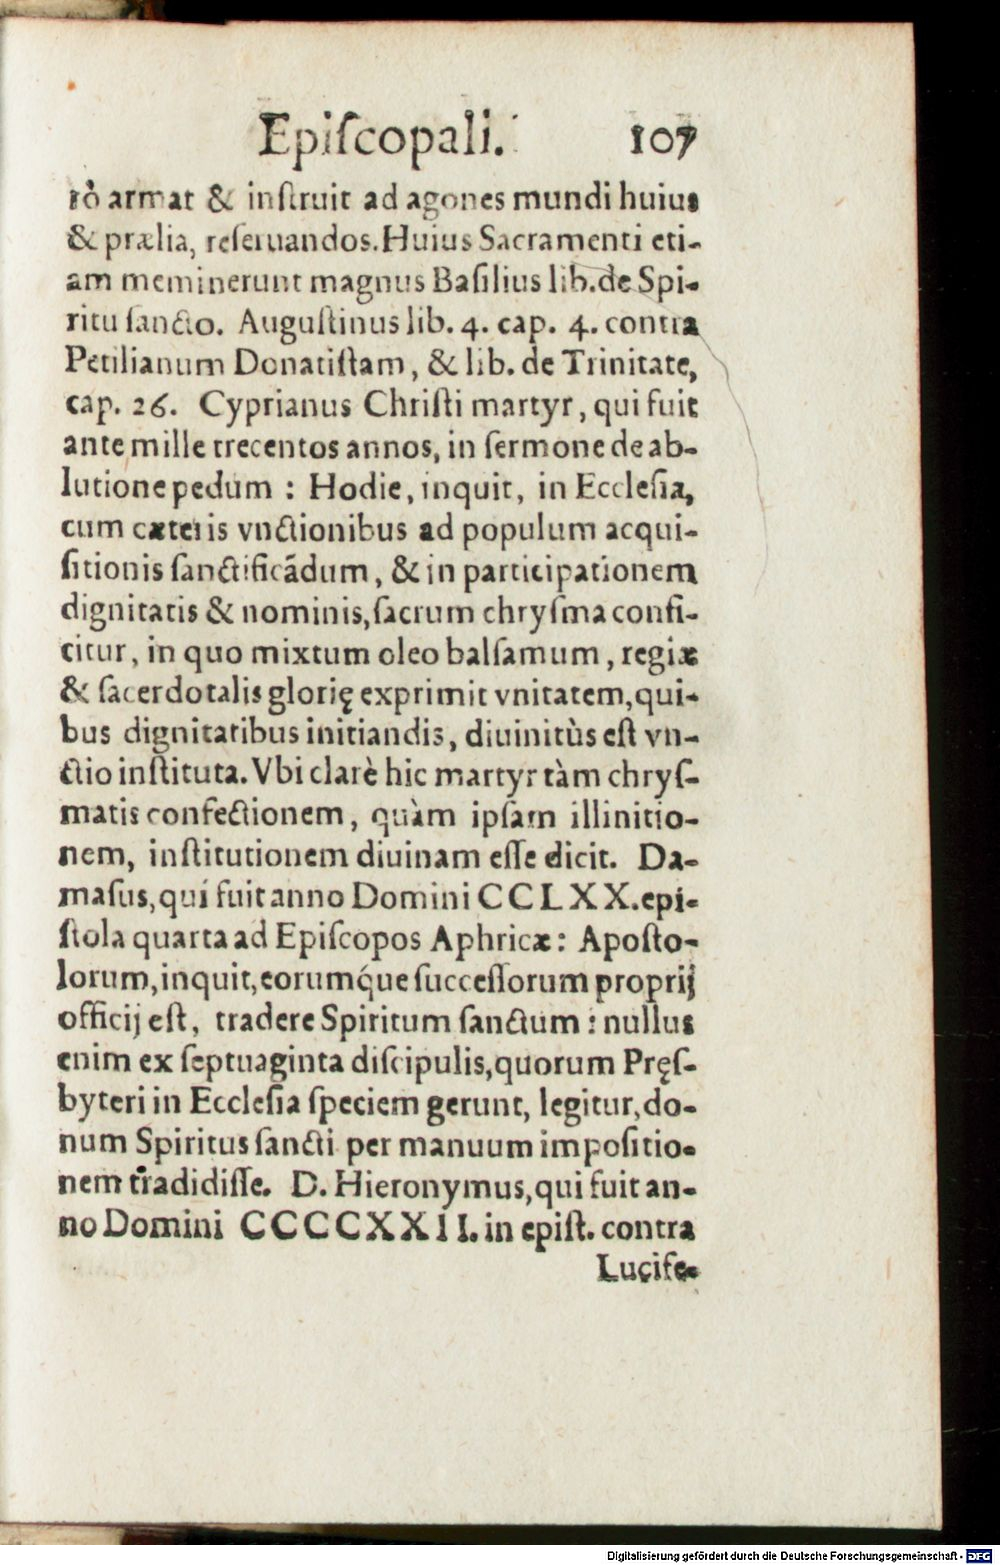 Epiſcopali. 107
rò armat & inſtruit ad agones mundi huius
& prælia, reſeruandos. Huius Sacramenti eti-
am meminerunt magnus Baſilius lib. de Spi-
ritu ſancto. Auguſtinus lib. 4. cap. 4. contra
Petilianum Donatiſtam, & lib. de Trinitate,
cap. 26. Cyprianus Chriſti martyr, qui fuit
ante mille trecentos annos, in ſermone de ab-
lutione pedum : Hodie, inquit, in Eccleſia,
cum cæteris vnctionibus ad populum acqui-
ſitionis ſanctificādum, & in participationem
dignitatis & nominis, ſacrum chryſma confi-
citur, in quo mixtum oleo balſamum, regiæ
& ſacerdotalis glorię exprimit vnitatem, qui-
bus dignitatibus initiandis, diuinitùs eſt vn-
ctio inſtituta. Vbi clarè hic martyr tàm chryſ-
matis confectionem, quàm ipſam illinitio-
nem, inſtitutionem diuinam eſſe dicit. Da-
maſus, qui fuit anno Domini CCLXX. epi-
ſtola quarta ad Epiſcopos Aphricæ : Apoſto-
lorum, inquit, eorumq́ue ſucceſſorum proprij
officij eſt, tradere Spiritum ſanctum : nullus
enim ex ſeptuaginta diſcipulis, quorum Pręſ-
byteri in Eccleſia ſpeciem gerunt, legitur, do-
num Spiritus ſancti per manuum impoſitio-
nem tradidiſſe. D. Hieronymus, qui fuit an-
no Domini CCCCXXII. in epiſt. contra
Lucife-
Digitalisierung gefördert durch die Deutsche Forschungsgemeinschaft - DFG